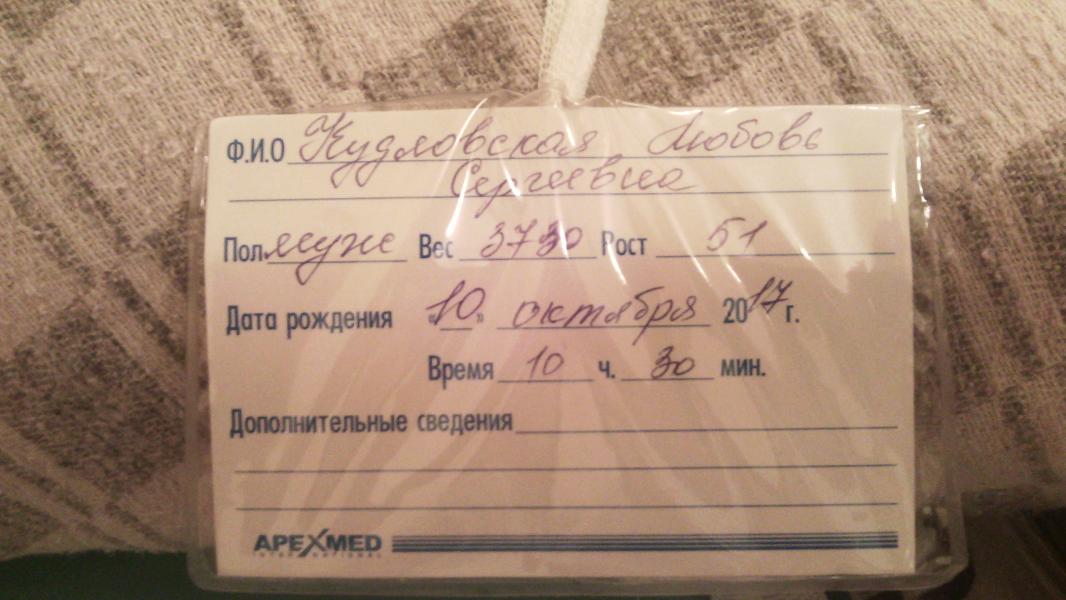 Ф.И.О Кудловская Любовь
Сергеевна
Пол муж Вес 3730 Рост 51
Дата рождения «10» октября 2017 г.
Время 10 ч. 30 мин.
Дополнительные сведения
APEXMED
INTERNATIONAL